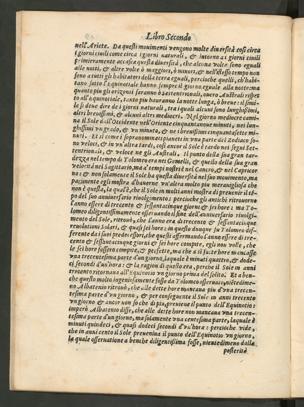 Libro Secondo
nell'Ariete. Da questi mouimenti vengono molte diuersità così circa
i giorni ciuili come circa i giorni naturali, & intorno ai giorni ciuili
primieramente accasca questa diuersità, che alcuna volta sono eguali
alle notti, & altre volte ò maggiori, ò minori, & nell'istesso tempo non
sono a tutti gli habitatori della terra eguali, percioche quelli, ch'habi-
tano sotto l'equinottiale hanno sempre il giorno eguale alla notte: ma
quanto piu gli orizonti saranno
all'equinottiale, tanto piu haueranno la notte lunga, ò breue: il simi-
le si deue dire de i giorni naturali, tra i quali alcuni sono lunghissimi,
altri breuissimi, & alcuni altri mediocri. Nel giorno mediocre cami-
na il Sole dall'Occidente nell'Oriente cinquantanoue minuti, nei lun-
ghissimi vn grado, & vn minuto, & ne i breuissimi cinquantasette mi-
nuti. Et si come i sopranominati pianeti in vna parte di Zodiaco so-
no veloci, & in vn'altra tardi, così ancor il Sole è tardo nei segni Set-
tentrionali, & veloce ne gli Australi. Il punto della sua gran tar-
dezza nel tempo di Tolomeo era nei Gemelli, & quello della sua gran
velocità nel Sagittario, ma a' tempi nostri nel Cancro, & nel Capricor
no: & non solamente il Sole ha questa diuersità nel suo mouimento, ma
parimente egli mostra d'hauerne vn'altra molto piu marauigliosa che
non è questa, la qual'è, che il Sole in molti anni mostra di preuenire il tem-
po del suo anniuersario riuolgimento: percioche gli antichi ritrouerno
l'anno essere di trecento & sessantacinque giorni & sei hore: ma Tolo-
meo diligentissimamente osseruando il fine dell'anniuersario riuolgi-
mento del Sole, ritrouò, che l'anno era di trecento & sessantacinque
reuolutioni Solari, & quasi sei hore: in questo dunque fu Tolomeo dif-
ferente da i suoi predecessori, che questi affermauano l'anno essere di trecen-
to & sessantacinque giorni & sei hore compite, egli non volle, che
le sei hore fossero compite, & perfette, ma che a il fuße hore mancasse
vna trecentesima parte d'un giorno, laquale è minuti quattro, & dodi-
ci secondi d'un'hora: & la ragion di questo era, perche il Sole in anni
trecento ritornaua all'Equinottio vn giorno prima del solito. Et a ben-
che questo molto ingeniosamente fosse da Tolomeo osseruato, nondimeno
Albateno ritrouò, che alle dette hore mancaua piu d'una trecente-
sima parte d'un giorno, & per conseguente il Sole in anni trecento
vn giorno & ancor non sò che di piu preuenne il punto dell'Equinottio:
imperò Albateno disse, che alle dette hore non mancaua vna trecen-
tesima parte d'un giorno, ma solamente vna centesima parte, laquale è
minuti quindeci, & quasi dodeci secondi d'un'hora: percioche vide,
che in anni cento il Sole preueniua il punto dell'Equinottio vn giorno,
la quale osseruatione a benche diligentissima fosse, nientedimeno dalla
posterità